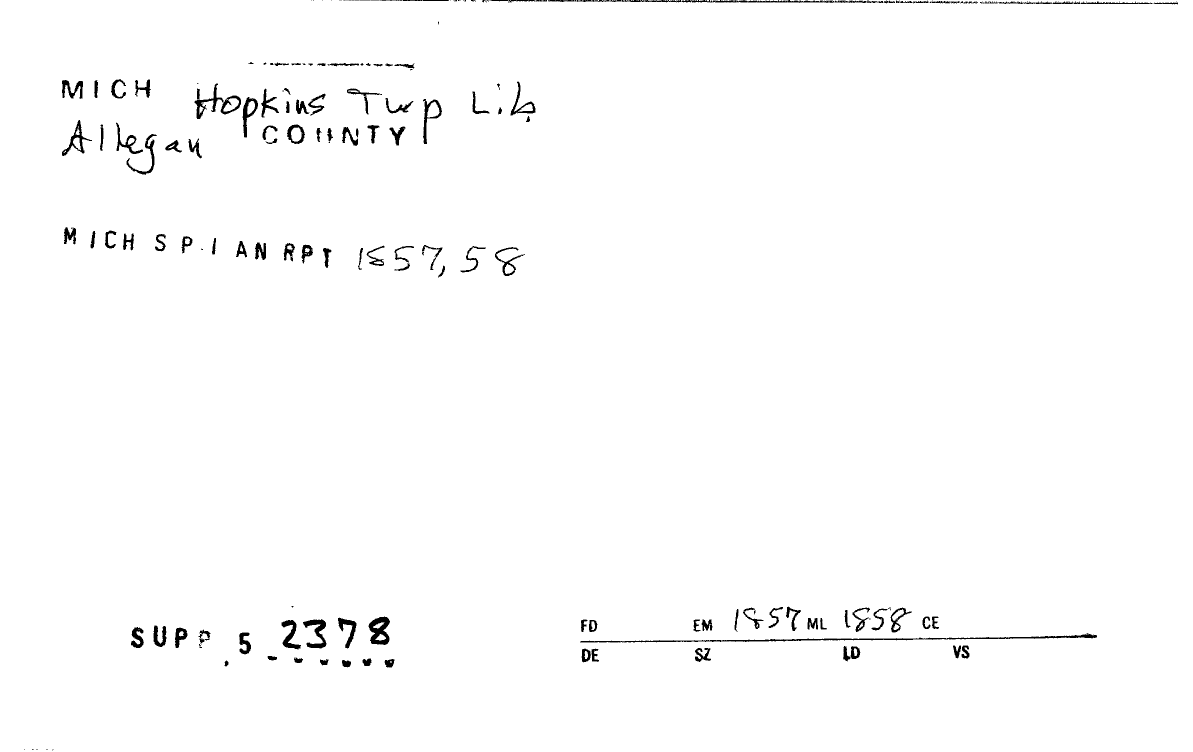 MICH Hopkins Twp Lib
Allegan COUNTY
MICH S P.I AN RPT 1857, 58
SUPP 5 2378
FD EM 1857 ML 1858 CE
DE SZ LD VS